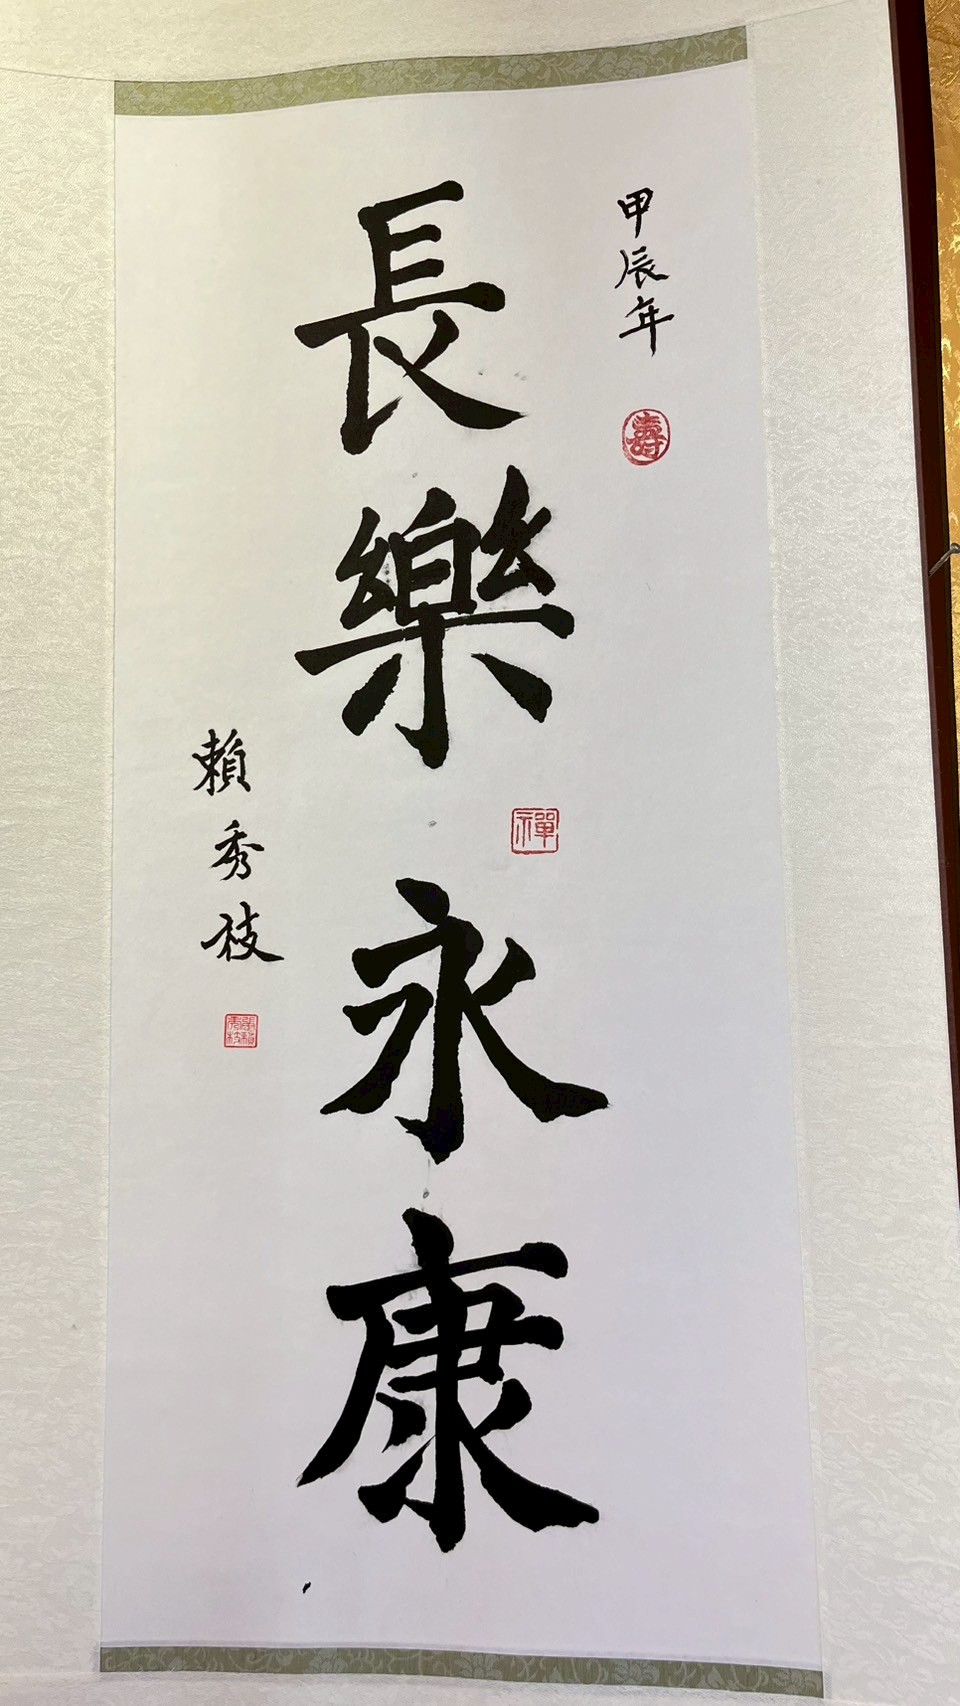 甲辰年
壽
長樂永康
禪
賴秀枝